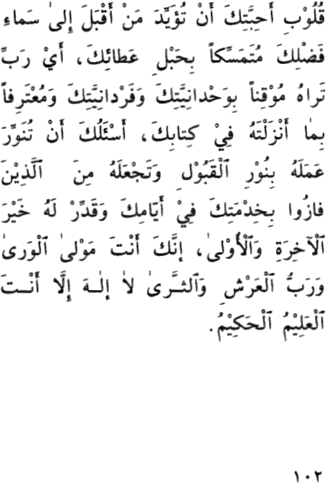 قُلُوْبِ أَحِبَّتِكَ أَنْ تُؤَيِّدَ مَنْ أَقْبَلَ إِلىٰ سَماءِ
فَضْلِكَ مُتَمَسِّكاً بِحَبْلِ عَطائِكَ، أَيْ رَبِّ
تَراهُ مُوْقِناً بِوَحْدانِيَّتِكَ وَفَرْدانِيَّتِكَ وَمُعْتَرِفاً
بِمٰا أَنْزَلْتَهُ فِيْ كِتابِكَ، أَسْئَلُكَ أَنْ تُنَوِّرَ
عَمَلَهُ بِنُوْرِ ٱلْقَبُوْلِ وَتَجْعَلَهُ مِنَ ٱلَّذِيْنَ
فازُوا بِخِدْمَتِكَ فِيْ أَيّامِكَ وَقَدِّرْ لَهُ خَيْرَ
ٱلآخِرَةِ وَٱلْأُوْلىٰ، إِنَّكَ أَنْتَ مَوْلىٰ ٱلْوَرىٰ
وَرَبُّ ٱلْعَرْشِ وَٱلثَّرىٰ لاٰ إِلـٰهَ إِلَّا أَنْـتَ
ٱلْعَلِيْمُ ٱلْحَكِيْمُ.
١٠٢